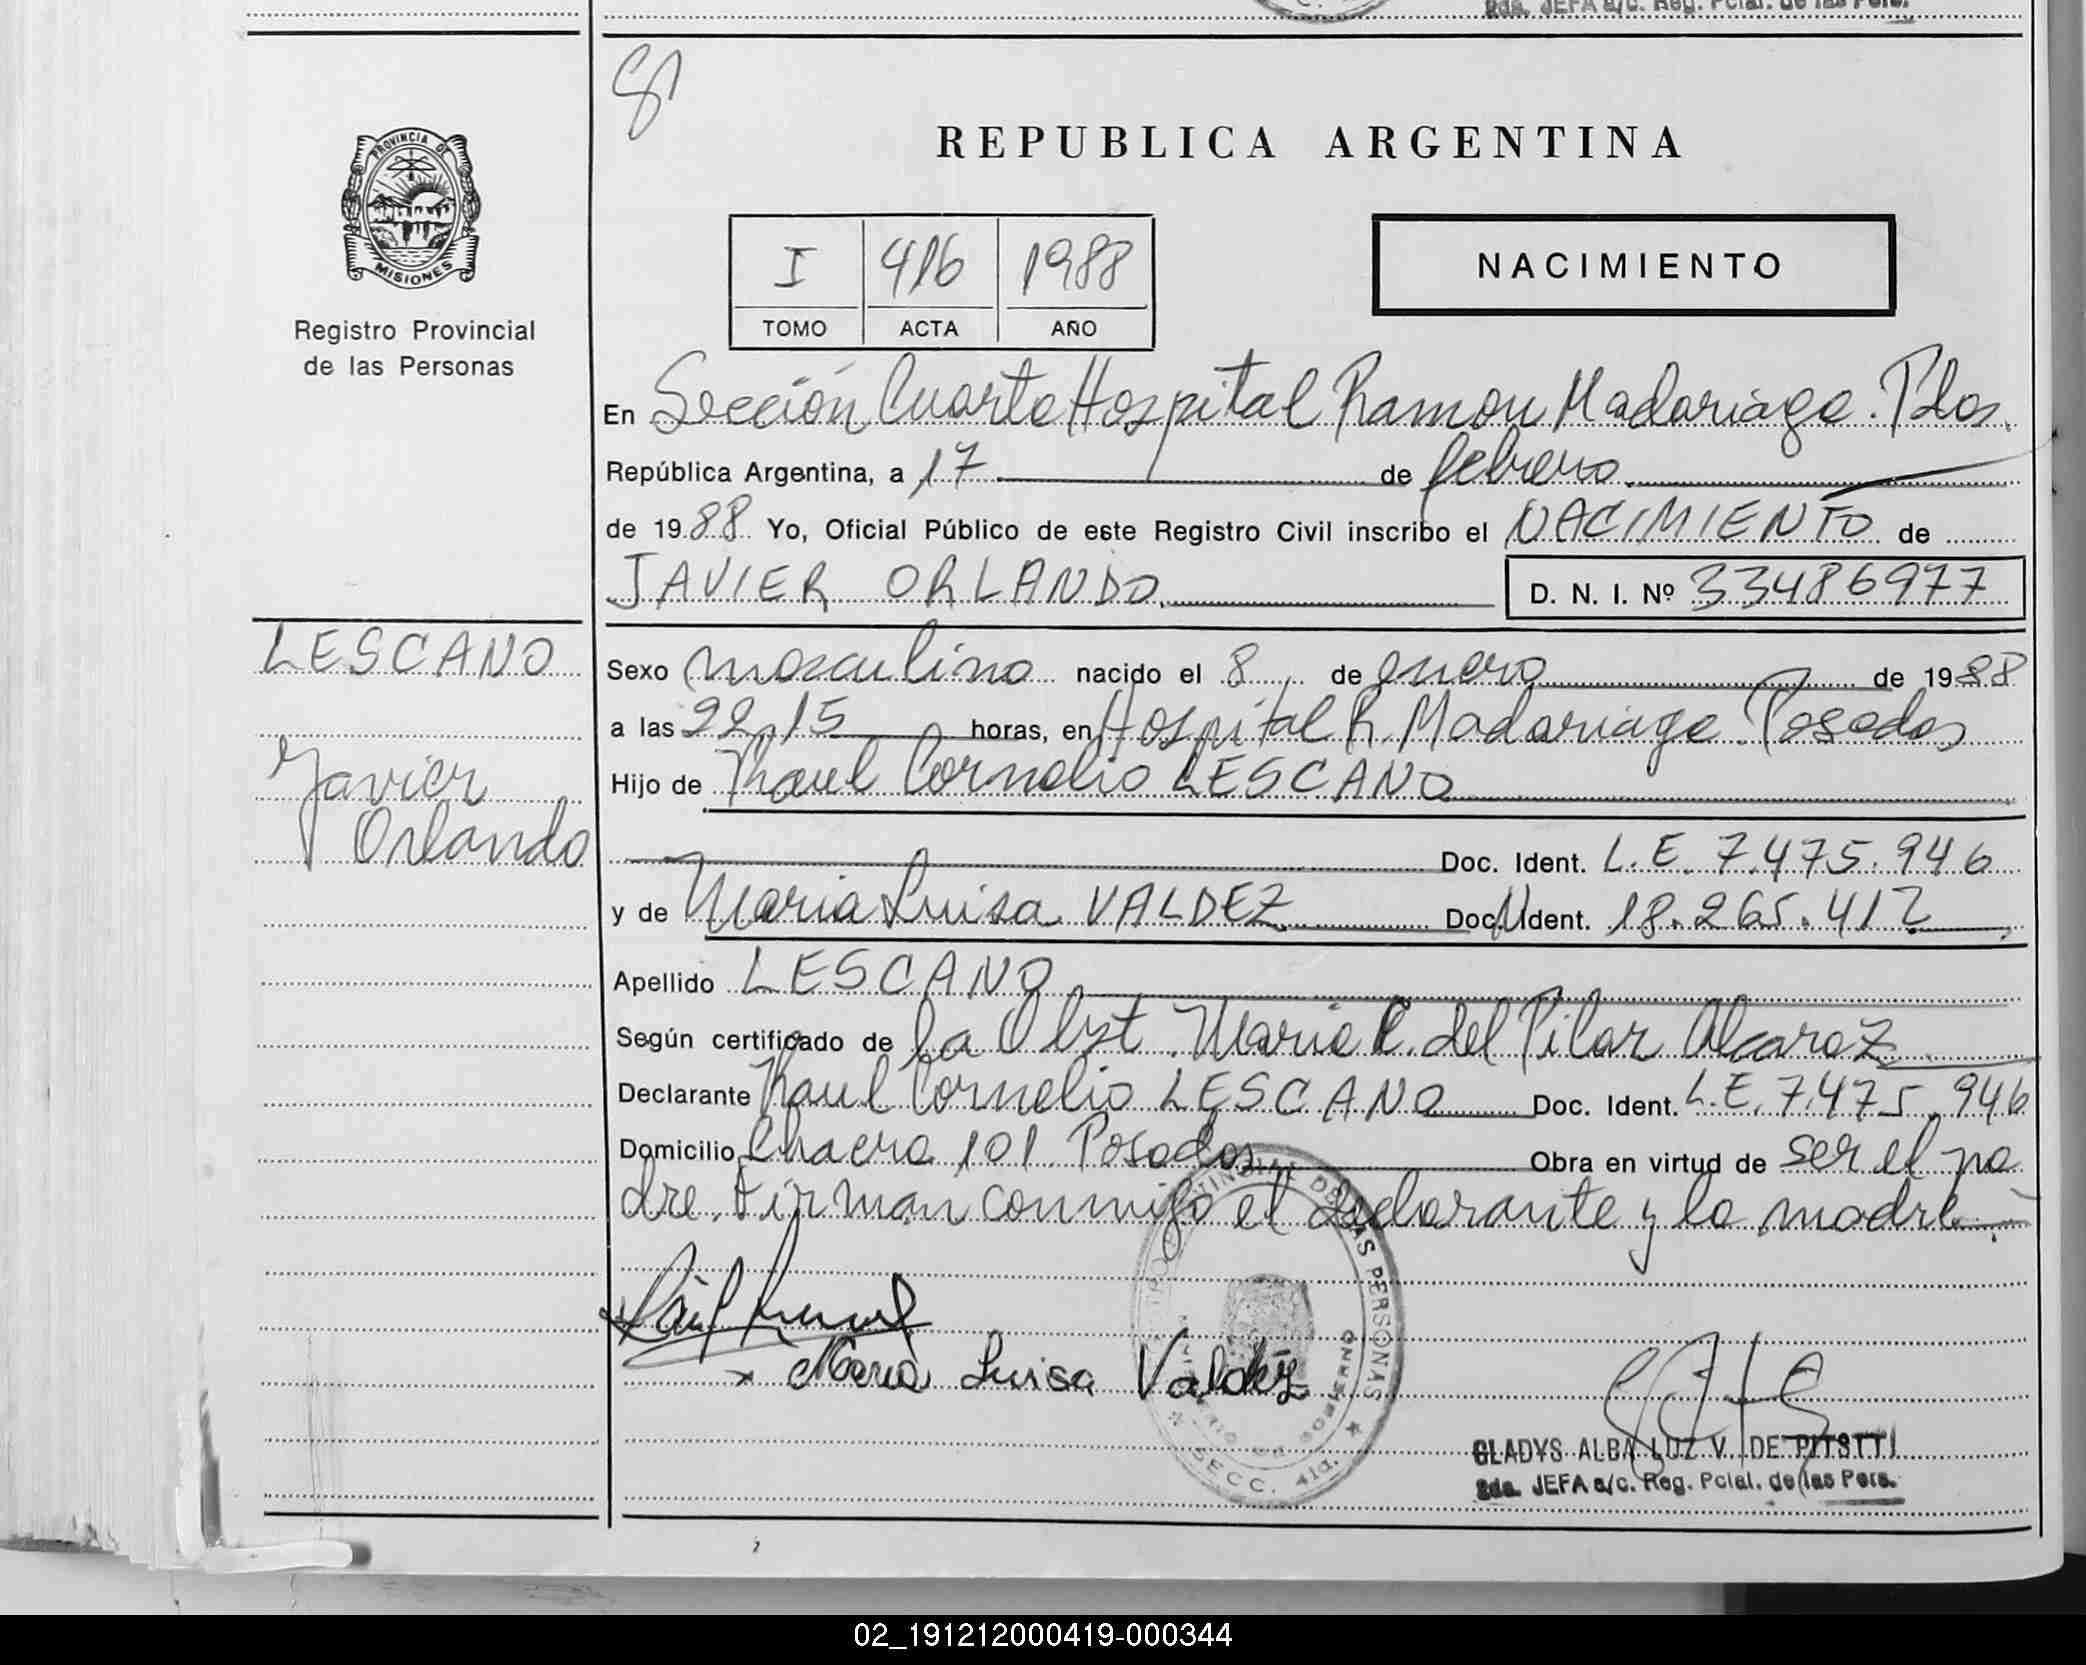 2da. JEFA a/c. Reg. Pcial. de las Pers.
REPUBLICA ARGENTINA
PROVINCIA DE
MISIONES
Registro Provincial
de las Personas
I 416 1988
TOMO ACTA AÑO
NACIMIENTO
En Sección Cuarta Hospital Ramon Madariaga. Pdas.
República Argentina, a 17 de febrero
de 1988 Yo, Oficial Público de este Registro Civil inscribo el NACIMIENTO de
JAVIER ORLANDO D. N. I. Nº 33486977
LESCANO
Javier
Orlando
Sexo masculino nacido el 8 de enero de 1988
a las 22,15 horas, en Hospital R. Madariaga. Posadas
Hijo de Raul Cornelio LESCANO
Doc. Ident. L.E. 7.475.946
y de Maria Luisa VALDEZ Doc. Ident. 18.265.412
Apellido LESCANO
Según certificado de la Obst. Maria C. del Pilar Alcaraz
Declarante Raul Cornelio LESCANO Doc. Ident. L.E. 7.475.946
Domicilio Chacra 101 Posadas Obra en virtud de ser el pa
dre. Firman conmigo el declarante y la madre.
x Maria Luisa Valdez
DE LAS PERSONAS
SECC. 4ta.
GLADYS ALBA LUZ V. DE
2da. JEFA a/c. Reg. Pcial. de las Pers.
02_191212000419-000344